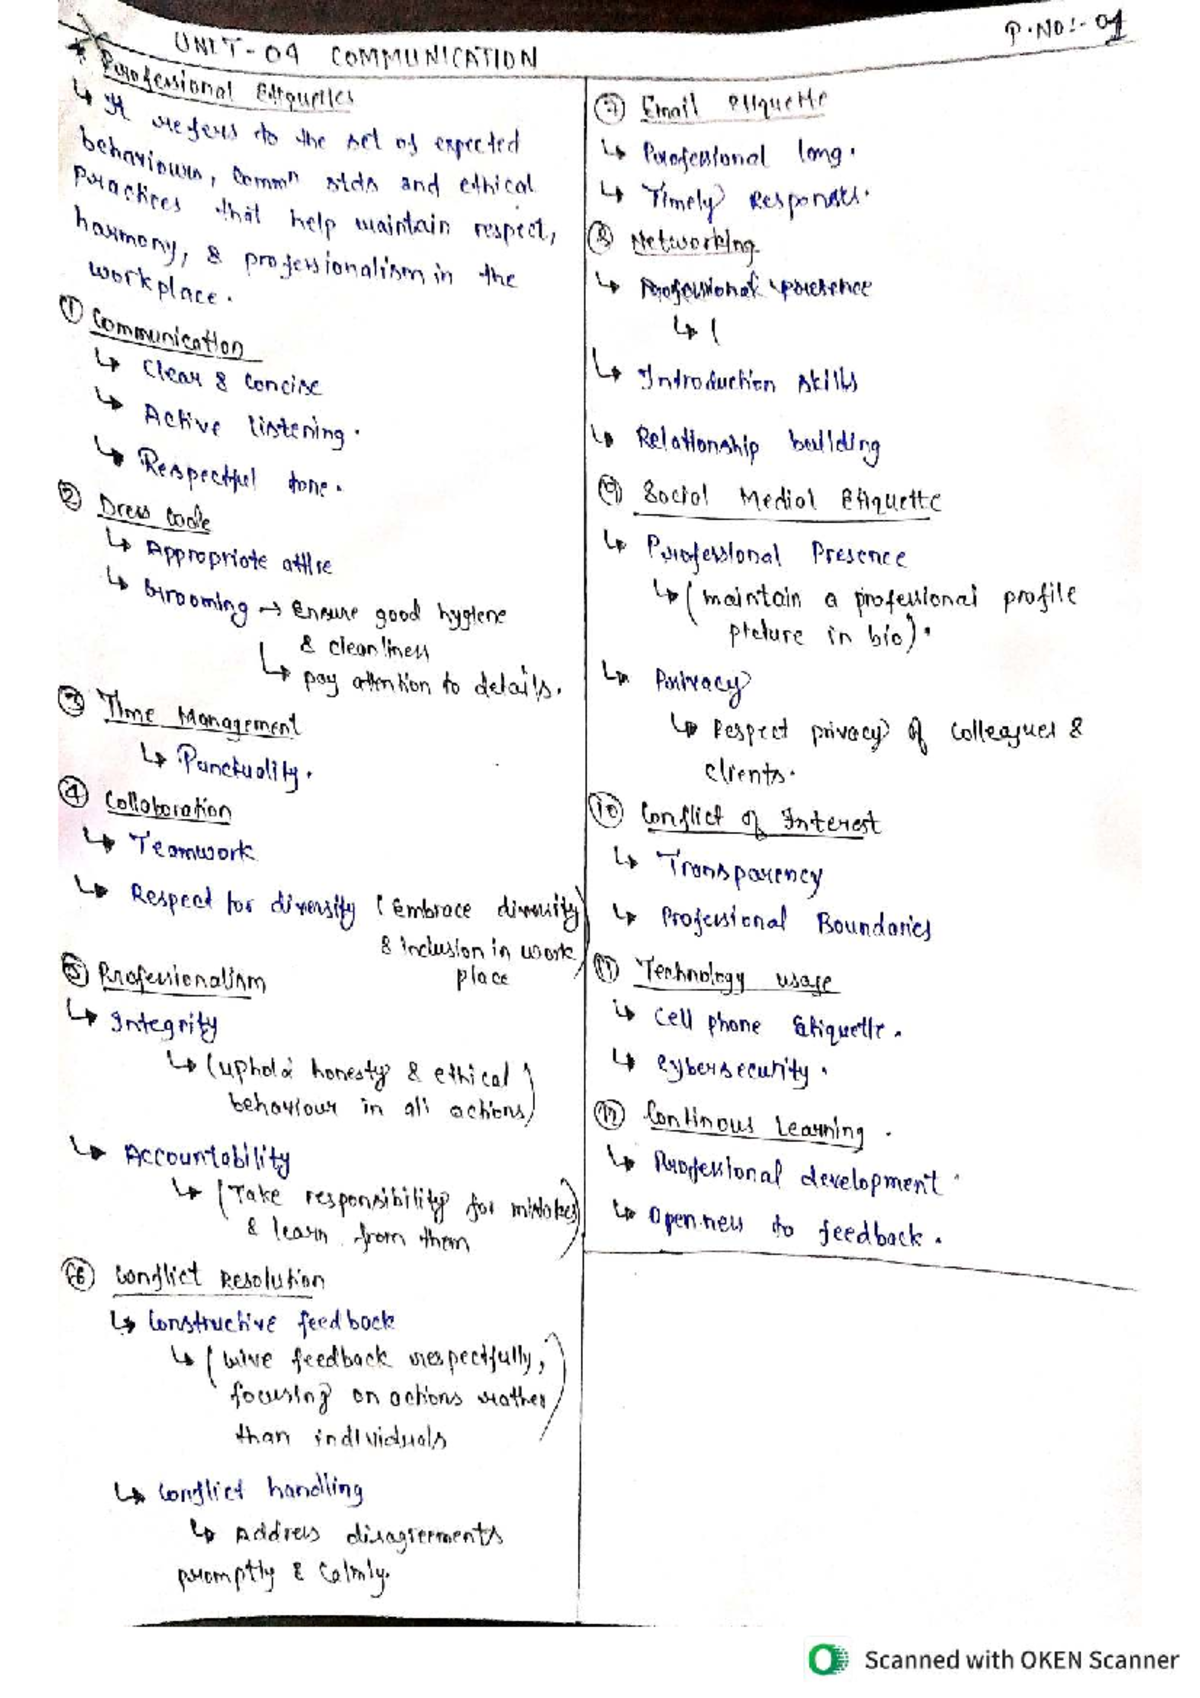 UNIT-04 COMMUNICATION
P.NO:- 01
* Professional Etiquettes
↳ It refers to the set of expected
behaviours, Commⁿ stds and ethical
Practices that help maintain respect,
harmony, & professionalism in the
workplace.
① Communication
↳ Clear & Concise
↳ Active listening.
↳ Respectful tone.
② Dress Code
↳ Appropriate attire
↳ Grooming → Ensure good hygiene
& cleanliness
↳ pay attention to details.
③ Time Management
↳ Punctuality.
④ Collaboration
↳ Teamwork
↳ Respect for diversity (Embrace diversity
& inclusion in work
place
⑤ Professionalism
↳ Integrity
↳ (uphold honesty & ethical
behaviour in all actions)
↳ Accountability
↳ (Take responsibility for mistakes
& learn from them
⑥ Conflict Resolution
↳ Constructive feedback
↳ (Give feedback respectfully,
focusing on actions rather
than individuals
↳ Conflict handling
↳ Address disagreements
promptly & Calmly.
⑦ Email etiquette
↳ Professional long.
↳ Timely Responses.
⑧ Networking
↳ Professional presence
↳ (
↳ Introduction skills
↳ Relationship building
⑨ Social Medial Etiquette
↳ Professional Presence
↳ (maintain a professional profile
picture in bio).
↳ Privacy
↳ Respect privacy of Colleagues &
clients.
⑩ Conflict of Interest
↳ Transparency
↳ Professional Boundaries
⑪ Technology usage
↳ Cell phone Etiquette.
↳ Cybersecurity.
⑫ Continous Learning.
↳ Professional development.
↳ Openness to feedback.
Scanned with OKEN Scanner